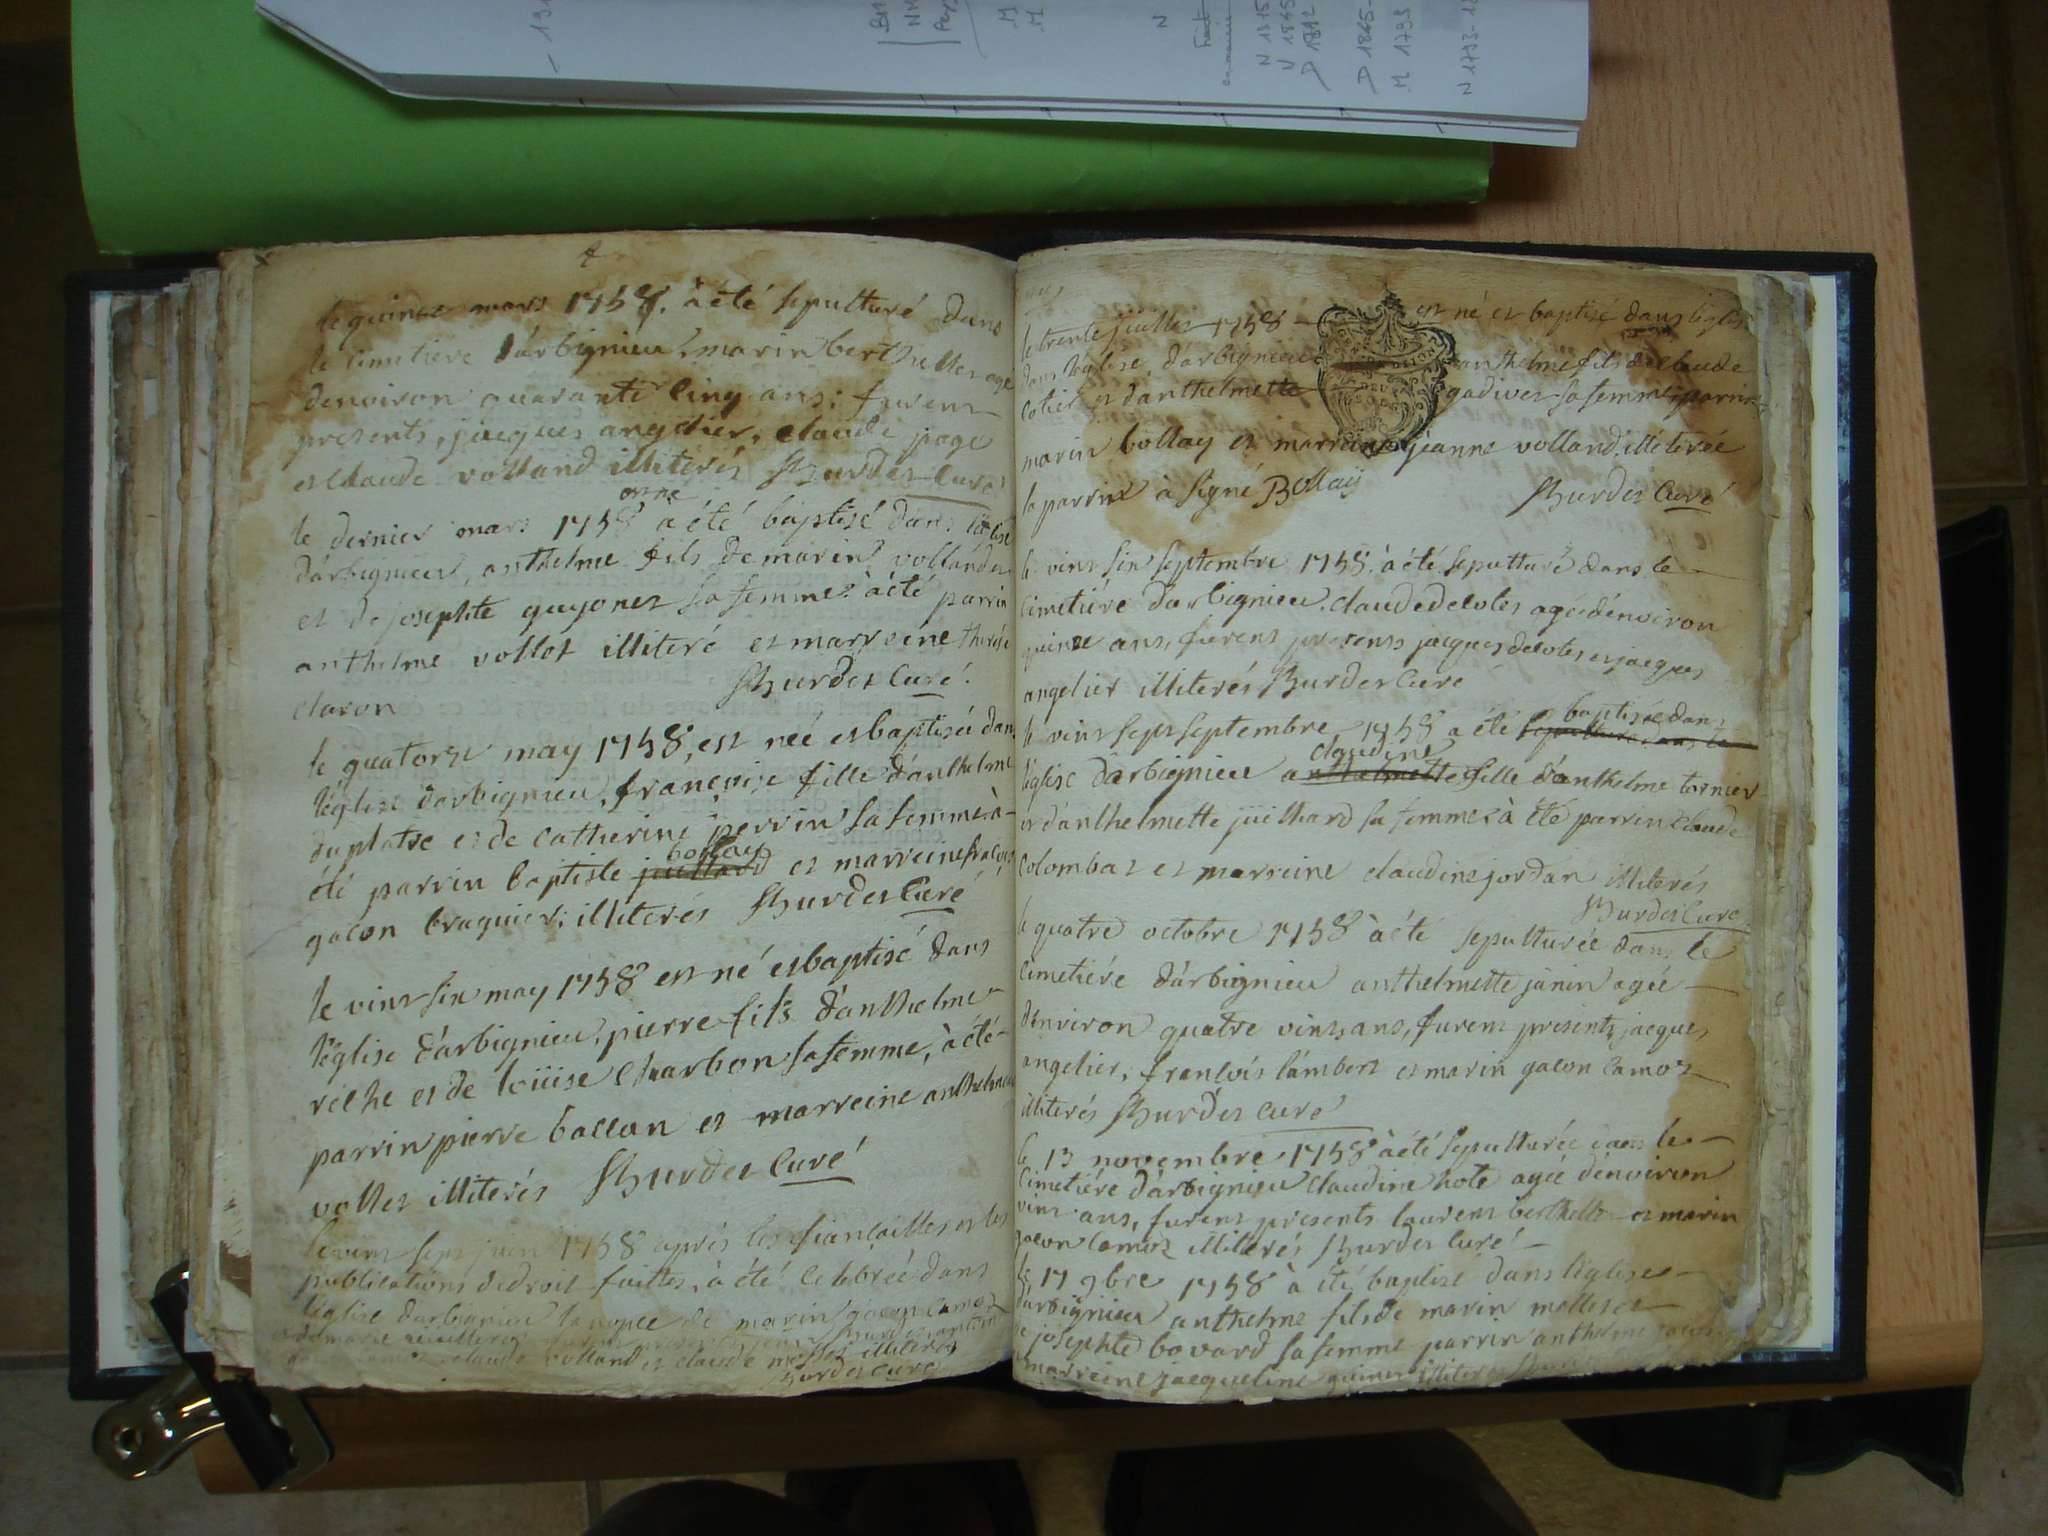 le quinze mars 1758. à été sepulturé dans
le cimetiére d'arbignieu, marin berthelles agé
denviron quarante cinq ans; furens
presents, jacques angelier, claude page
et claude volland illiterés Hurdes Curé
le dernier mars 1758 est né à été baptisé dans léglise
d'arbignieu, anthelme fils de marin volland
et de josephte guyones sa femme: à été parrin
anthelme vollot illiteré es marreine therese
claron Hurdes Curé.
le quatorze may 1758, est née es baptisée dans
léglise d'arbignieu, françoise fille d'anthelme
duplatre es de catherine perrin sa femme: à
été parrin baptiste bollay es marreine
gacon braquier; illiterés Hurdes Curé
le vins six may 1758 est né es baptisé dans
léglise d'arbignieu, pierre fils d'anthelme
riche es de loüise charbon sa femme, à été
parrin pierre ballan es marreine anthelme
volles illiterés Hurdes Curé
le vins seps juin 1758 après les fiançailles es les
publications de droit faittes, à été celebrée dans
léglise d'arbignieu la nopce de marin gacon camoz
claude volland es claude illiterés
Hurdes Curé
le trente juilles 1758 est né es baptisé dans léglise
dans léglise d'arbignieu anthelme fils de claude
cotier es d'anthelmette gadives sa femme parrin
marin bollay es marreine jeanne volland illiterée
le parrin à signé Bollay Hurdes Curé
le vins six septembre 1758. à été sepulturé dans le
cimetiére d'arbignieu. claude delotes agé dénviron
quinze ans, furens presens jacques delotes es jacques
angelier illiterés Hurdes Curé
le vins seps septembre 1758 a été sepulturé dans le baptisée dans
léglise d'arbignieu anthelmette claudine fille d'anthelme tornier
es d'anthelmette juilhard sa femme: à été parrin claude
colombas es marreine claudine jordan illiterés
Hurdes Curé
le quatre octobre 1758 à été sepulturée dans le
cimetiére d'arbignieu anthelmette janin agée
dénviron quatre vins ans, furens presents jacques
angelier, françois lambers es marin gacon camoz
illiterés Hurdes Curé
le 13 novembre 1758 à été sepulturée dans le
cimetiére d'arbignieu claudine hote agée dénviron
vins ans, furens presents laurens berthelles es marin
gacon camoz illiterés Hurdes Curé
le 17 9bre 1758 à été baptisé dans léglise
d'arbignieu anthelme fils de marin molles es
de josephte bovard sa femme parrin anthelme
marreine jacqueline illiterés
N 1815
V 1845
D 1812
D 1845
M 1793
N 1793